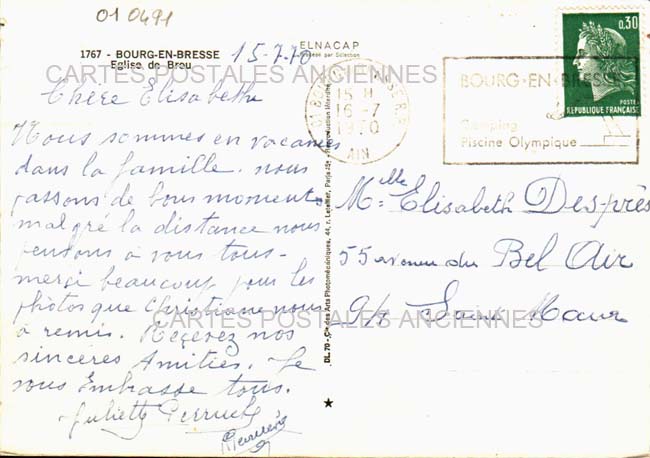 01 0491
1767 - BOURG-EN-BRESSE
Eglise de Brou
ELNACAP
15-7-70
CARTES POSTALES ANCIENNES
Chère Elisabeth
Nous sommes en vacances
dans la famille. nous
passons de bons moments
malgré la distance nous
pensons à vous tous-
merci beaucoup pour les
photos que Christiane nous
a remis. Recevez nos
sincères Amitiés. Je
vous Embrasse tous.
Juliette
CARTES POSTALES ANCIENNES
DL. 70 - Cie des Arts Photomécaniques, 44, r. Letellier, Paris-15e - Reproduction interdite
15 H
16-7
1970
AIN
BOURG-EN-BRESSE
Camping
Piscine Olympique
0,30
POSTES
REPUBLIQUE FRANÇAISE
Melle Elisabeth Desprès
55 avenue du Bel Air
94 Saint Maur